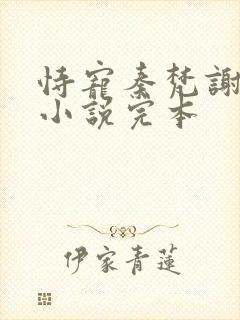 恃寵秦梵謝
小說完本
伊家青蓮